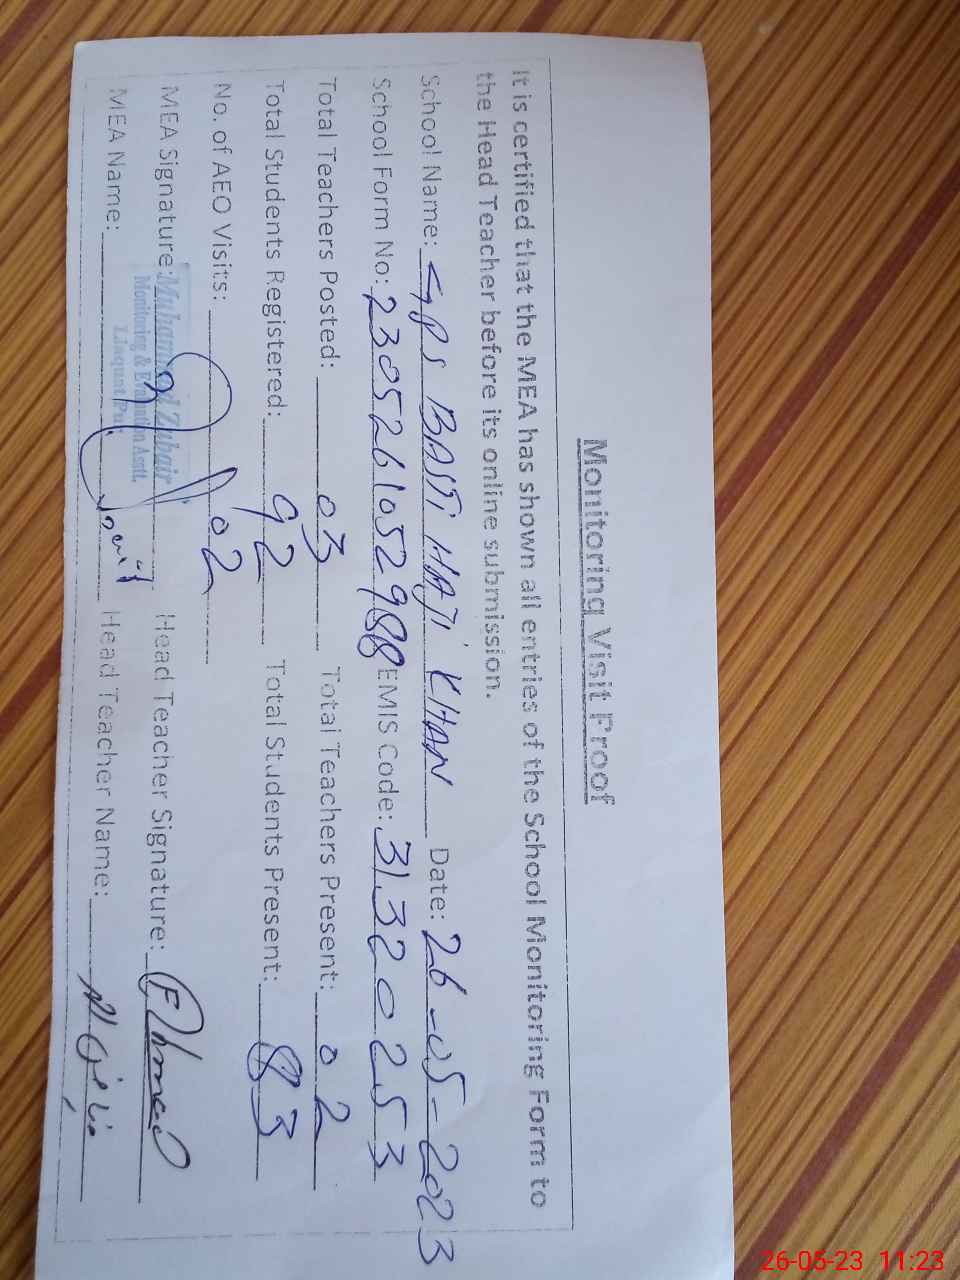 Monitoring Visit Proof
It is certified that the MEA has shown all entries of the School Monitoring Form to
the Head Teacher before its online submission.
School Name: GPS BASTI HAJI KHAN Date: 26-05-2023
School Form No: 230526105298 EMIS Code: 31320253
Total Teachers Posted: 03 Total Teachers Present: 02
Total Students Registered: 92 Total Students Present: 83
No. of AEO Visits: 02
MEA Signature: Head Teacher Signature:
Muhammad Zubair
Monitoring & Evaluation Asstt.
Liaquat Pur
MEA Name: Head Teacher Name:
26-05-23 11:23